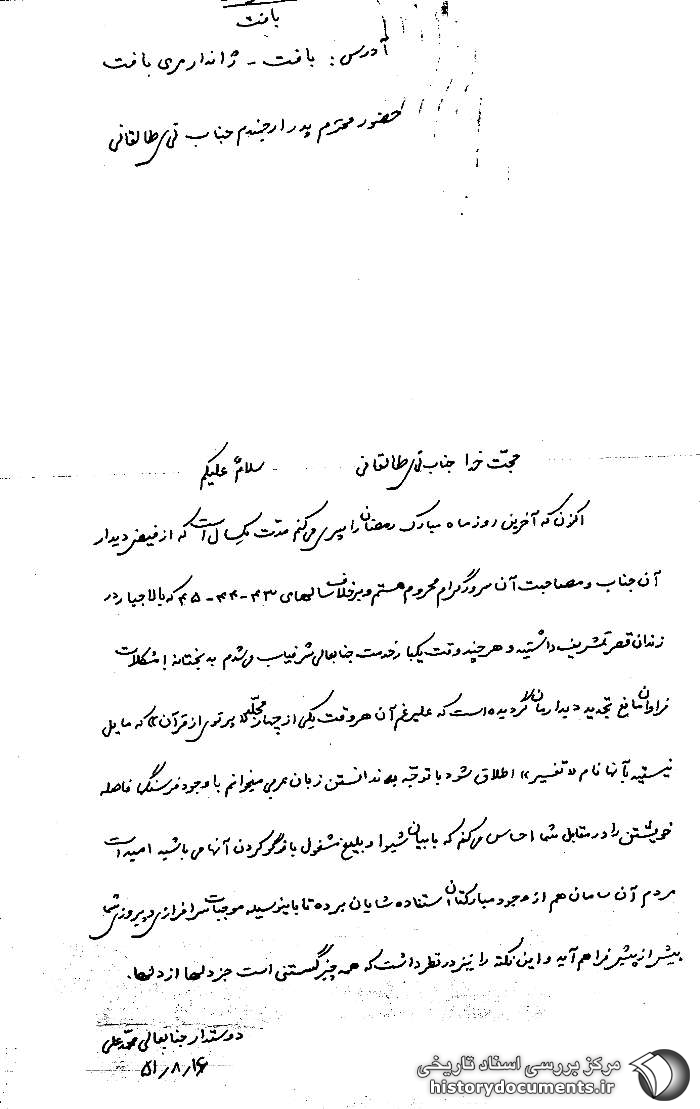 بافت
آدرس: بافت - ژاندارمری بافت
حضور محترم پدر ارجمندم جناب آقای طالقانی
حجّت خدا جناب آقای طالقانی سلامٌ علیکم
اکنون که آخرین روز ماه مبارک رمضان را سپری می‌کنم مدّت یکسال است که از فیض دیدار
آن جناب و مصاحبت آن سرور گرام محروم هستم و برخلاف سالهای ۴۳-۴۴-۴۵ که بالاجبار در
زندان قصر تشریف داشتید و هر چند وقت یکبار خدمت جنابعالی شرفیاب می‌شدم بدبختانه اشکالات
فراوان مانع تجدید دیدارمان گردیده است که علیرغم آن هر وقت یکی از چهار مجلّد «پرتوی از قرآن» که مایل
نیستید بآنها نام «تفسیر» اطلاق شود با توجّه به ندانستن زبان عربی میخوانم با وجود فرسنگها فاصله
خویشتن را در مقابل شما احساس می‌کنم که با بیان شیوا و بلیغ مشغول بازگو کردن آنها می‌باشید امید است
مردم آن سامان هم از وجود مبارکتان استفاده شایان برده تا باینوسیله موجبات سرافرازی و پیروزی شما
بیش از پیش فراهم آید و این نکته را نیز در نظر داشت که همه چیز گسستنی است جز دلها از دلها.
دوستدار جنابعالی محمد علی
۵۱/۸/۱۶
مرکز بررسی اسناد تاریخی
historydocuments.ir